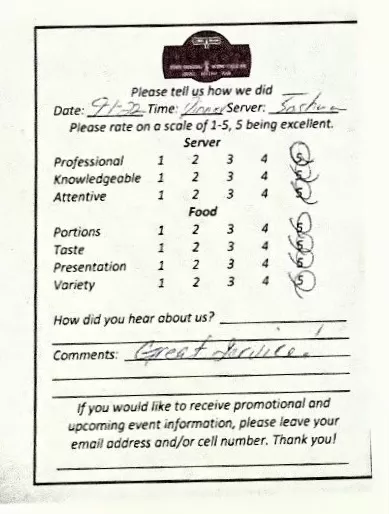 Please tell us how we did
Date: 9-1-22 Time: Dinner Server: Joshua
Please rate on a scale of 1-5, 5 being excellent.
Server
Professional 1 2 3 4 5
Knowledgeable 1 2 3 4 5
Attentive 1 2 3 4 5
Food
Portions 1 2 3 4 5
Taste 1 2 3 4 5
Presentation 1 2 3 4 5
Variety 1 2 3 4 5
How did you hear about us?
Comments: Great Service!
If you would like to receive promotional and
upcoming event information, please leave your
email address and/or cell number. Thank you!